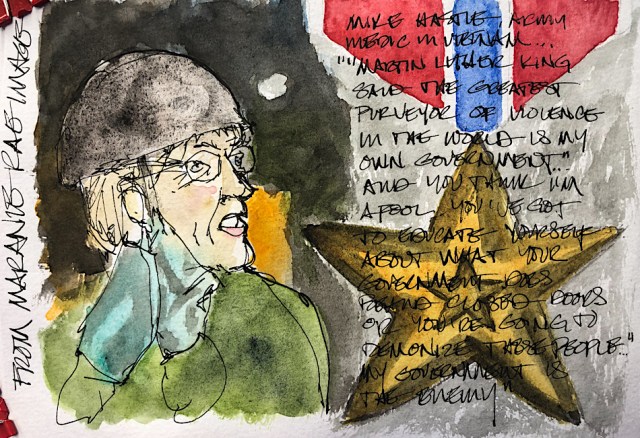 FROM MARANIE RAE IMAGE
MIKE HASTIE, ARMY
MEDIC IN VIETNAM...
""MARTIN LUTHER KING
SAID THE GREATEST
PURVEYOR OF VIOLENCE
IN THE WORLD IS MY
OWN GOVERNMENT..."
AND YOU THINK I'M
A FOOL. YOU'VE GOT
TO EDUCATE YOURSELF
ABOUT WHAT YOUR
GOVERNMENT DOES
BEHIND CLOSED DOORS
OR YOU'RE GOING TO
DEMONIZE THESE PEOPLE..."
MY GOVERNMENT IS
THE ENEMY"